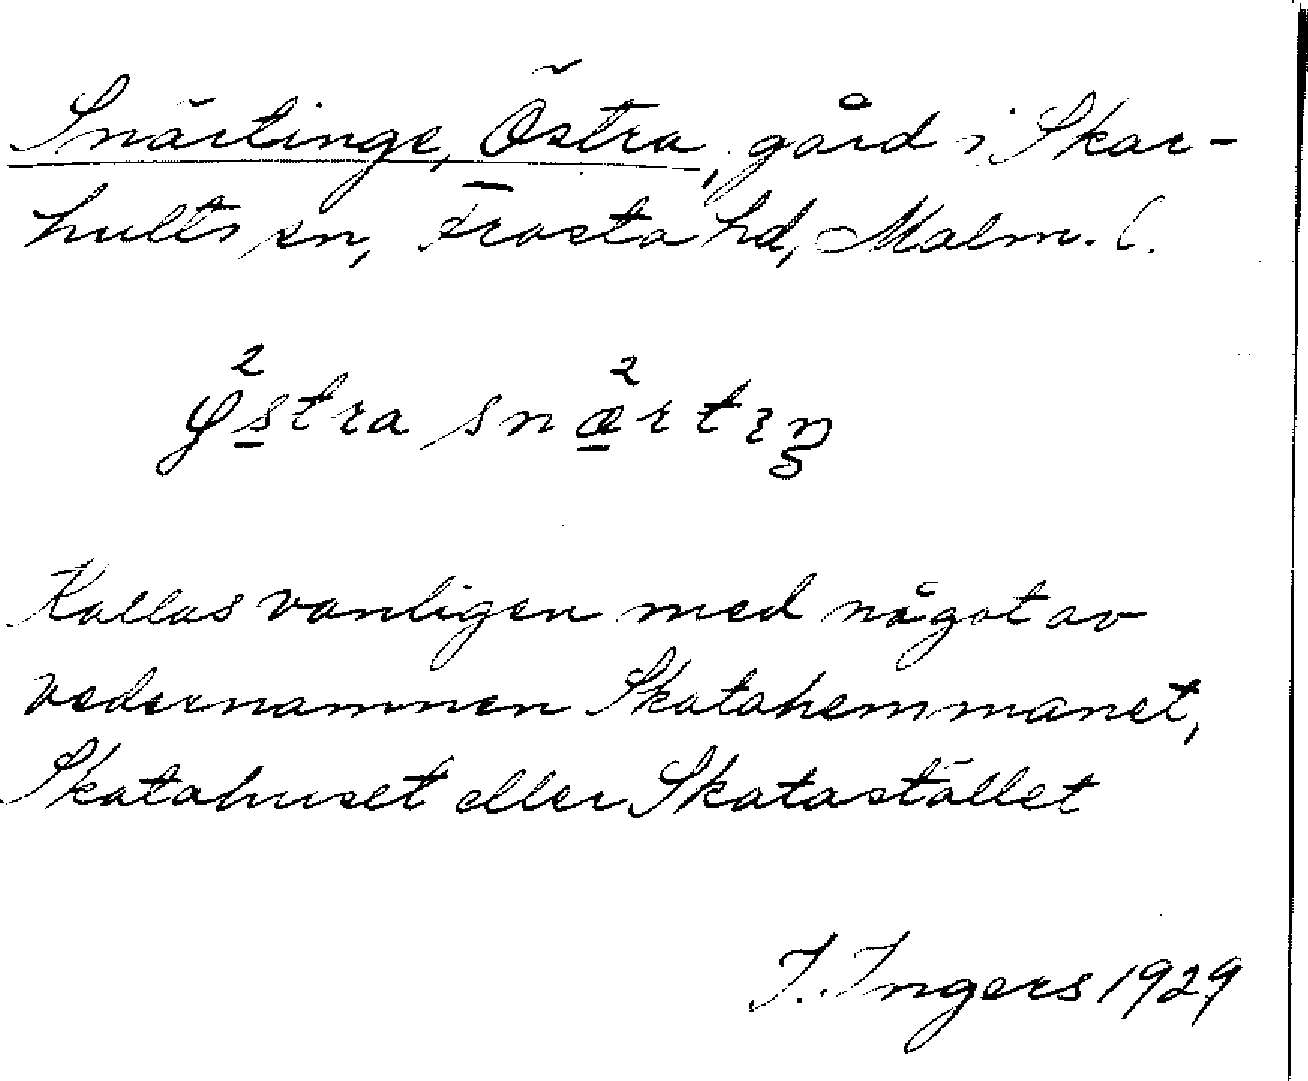 Snärtinge, Östra, gård i Skar-
hults sn, Frosta hd, Malm. l.
østra snærtiŋ
Kallas vanligen med något av
vedernamnen Skatahemmanet,
Skatahuset eller Skatastället
I. Ingers 1929